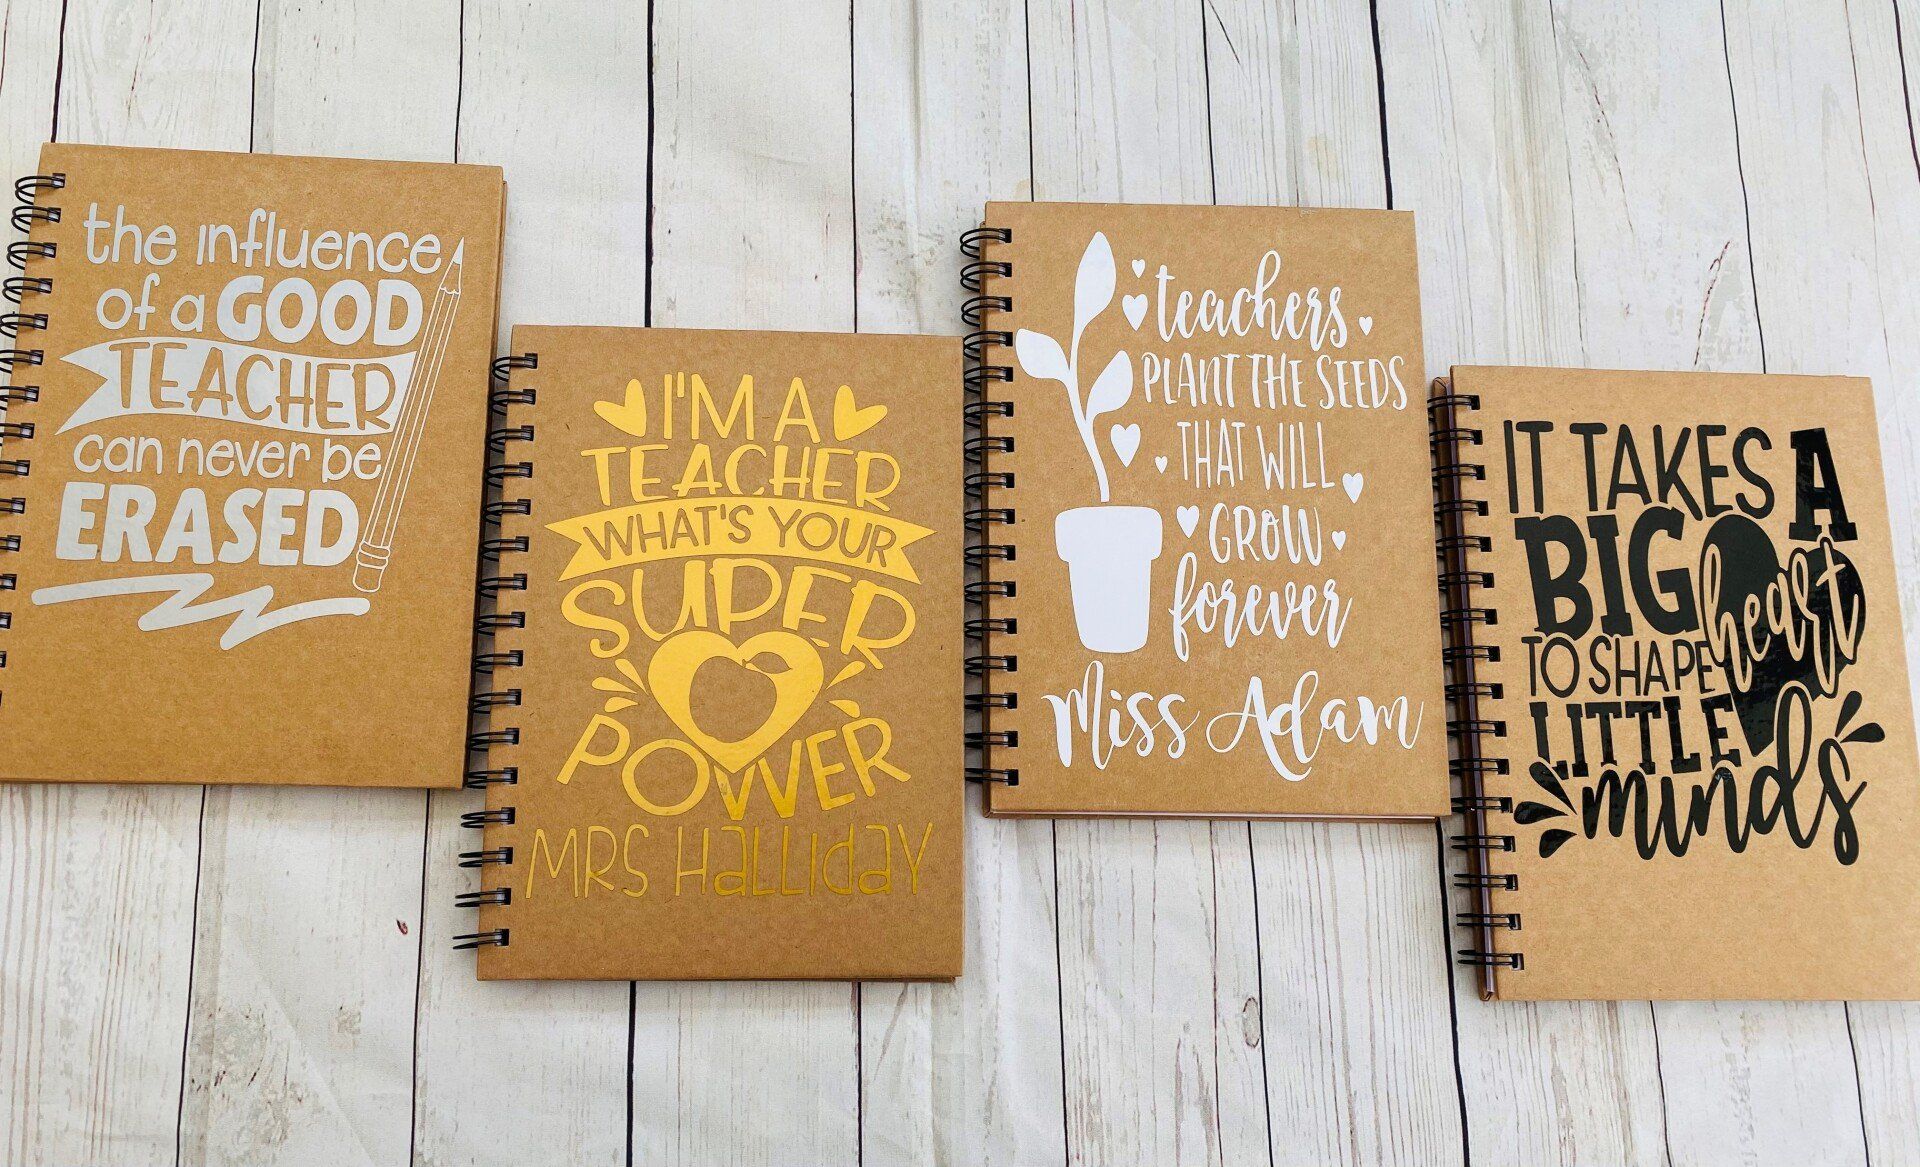 the influence
of a GOOD
TEACHER
can never be
ERASED
I'M A
TEACHER
WHAT'S YOUR
SUPER
POWER
MRS Halliday
teachers
PLANT THE SEEDS
THAT WILL
GROW
forever
Miss Adam
IT TAKES A
BIG heart
TO SHAPE
LITTLE
minds